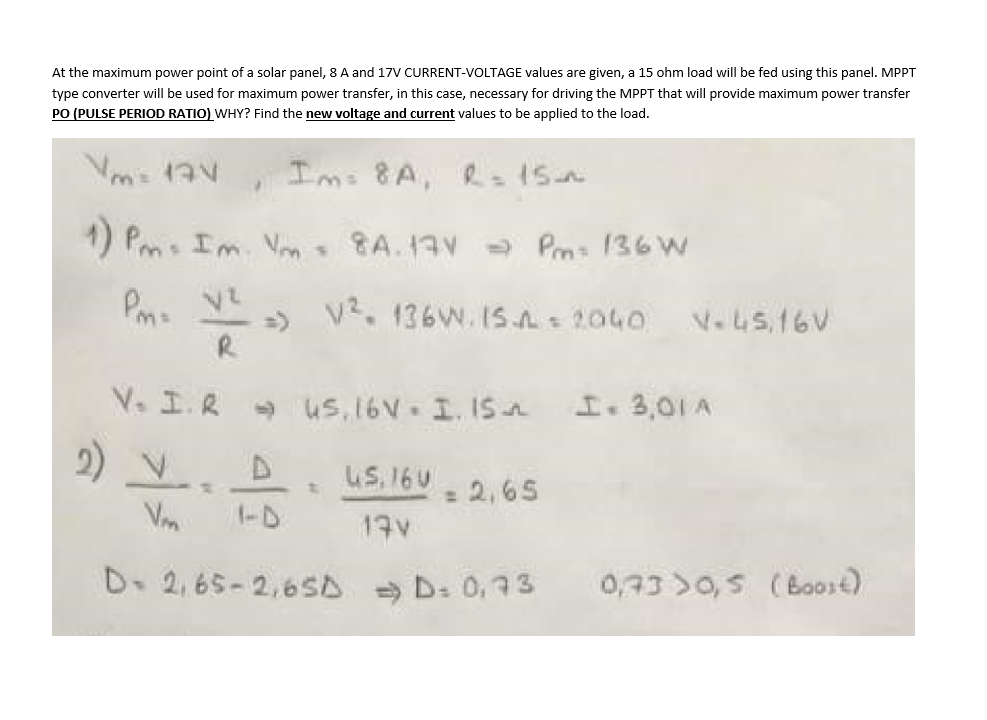 At the maximum power point of a solar panel, 8 A and 17V CURRENT-VOLTAGE values are given, a 15 ohm load will be fed using this panel. MPPT
type converter will be used for maximum power transfer, in this case, necessary for driving the MPPT that will provide maximum power transfer
PO (PULSE PERIOD RATIO) WHY? Find the new voltage and current values to be applied to the load.
Vm = 17V , Im = 8A, R = 15Ω
1) Pm = Im. Vm = 8A. 17V ⇒ Pm = 136W
Pm = V²/R ⇒ V² = 136W. 15Ω = 2040 V = 45,16V
V = I. R ⇒ 45,16V = I. 15Ω I = 3,01A
2) V/Vm = D/1-D = 45,16V/17V = 2,65
D = 2,65 - 2,65D ⇒ D = 0,73 0,73 > 0,5 (Boost)